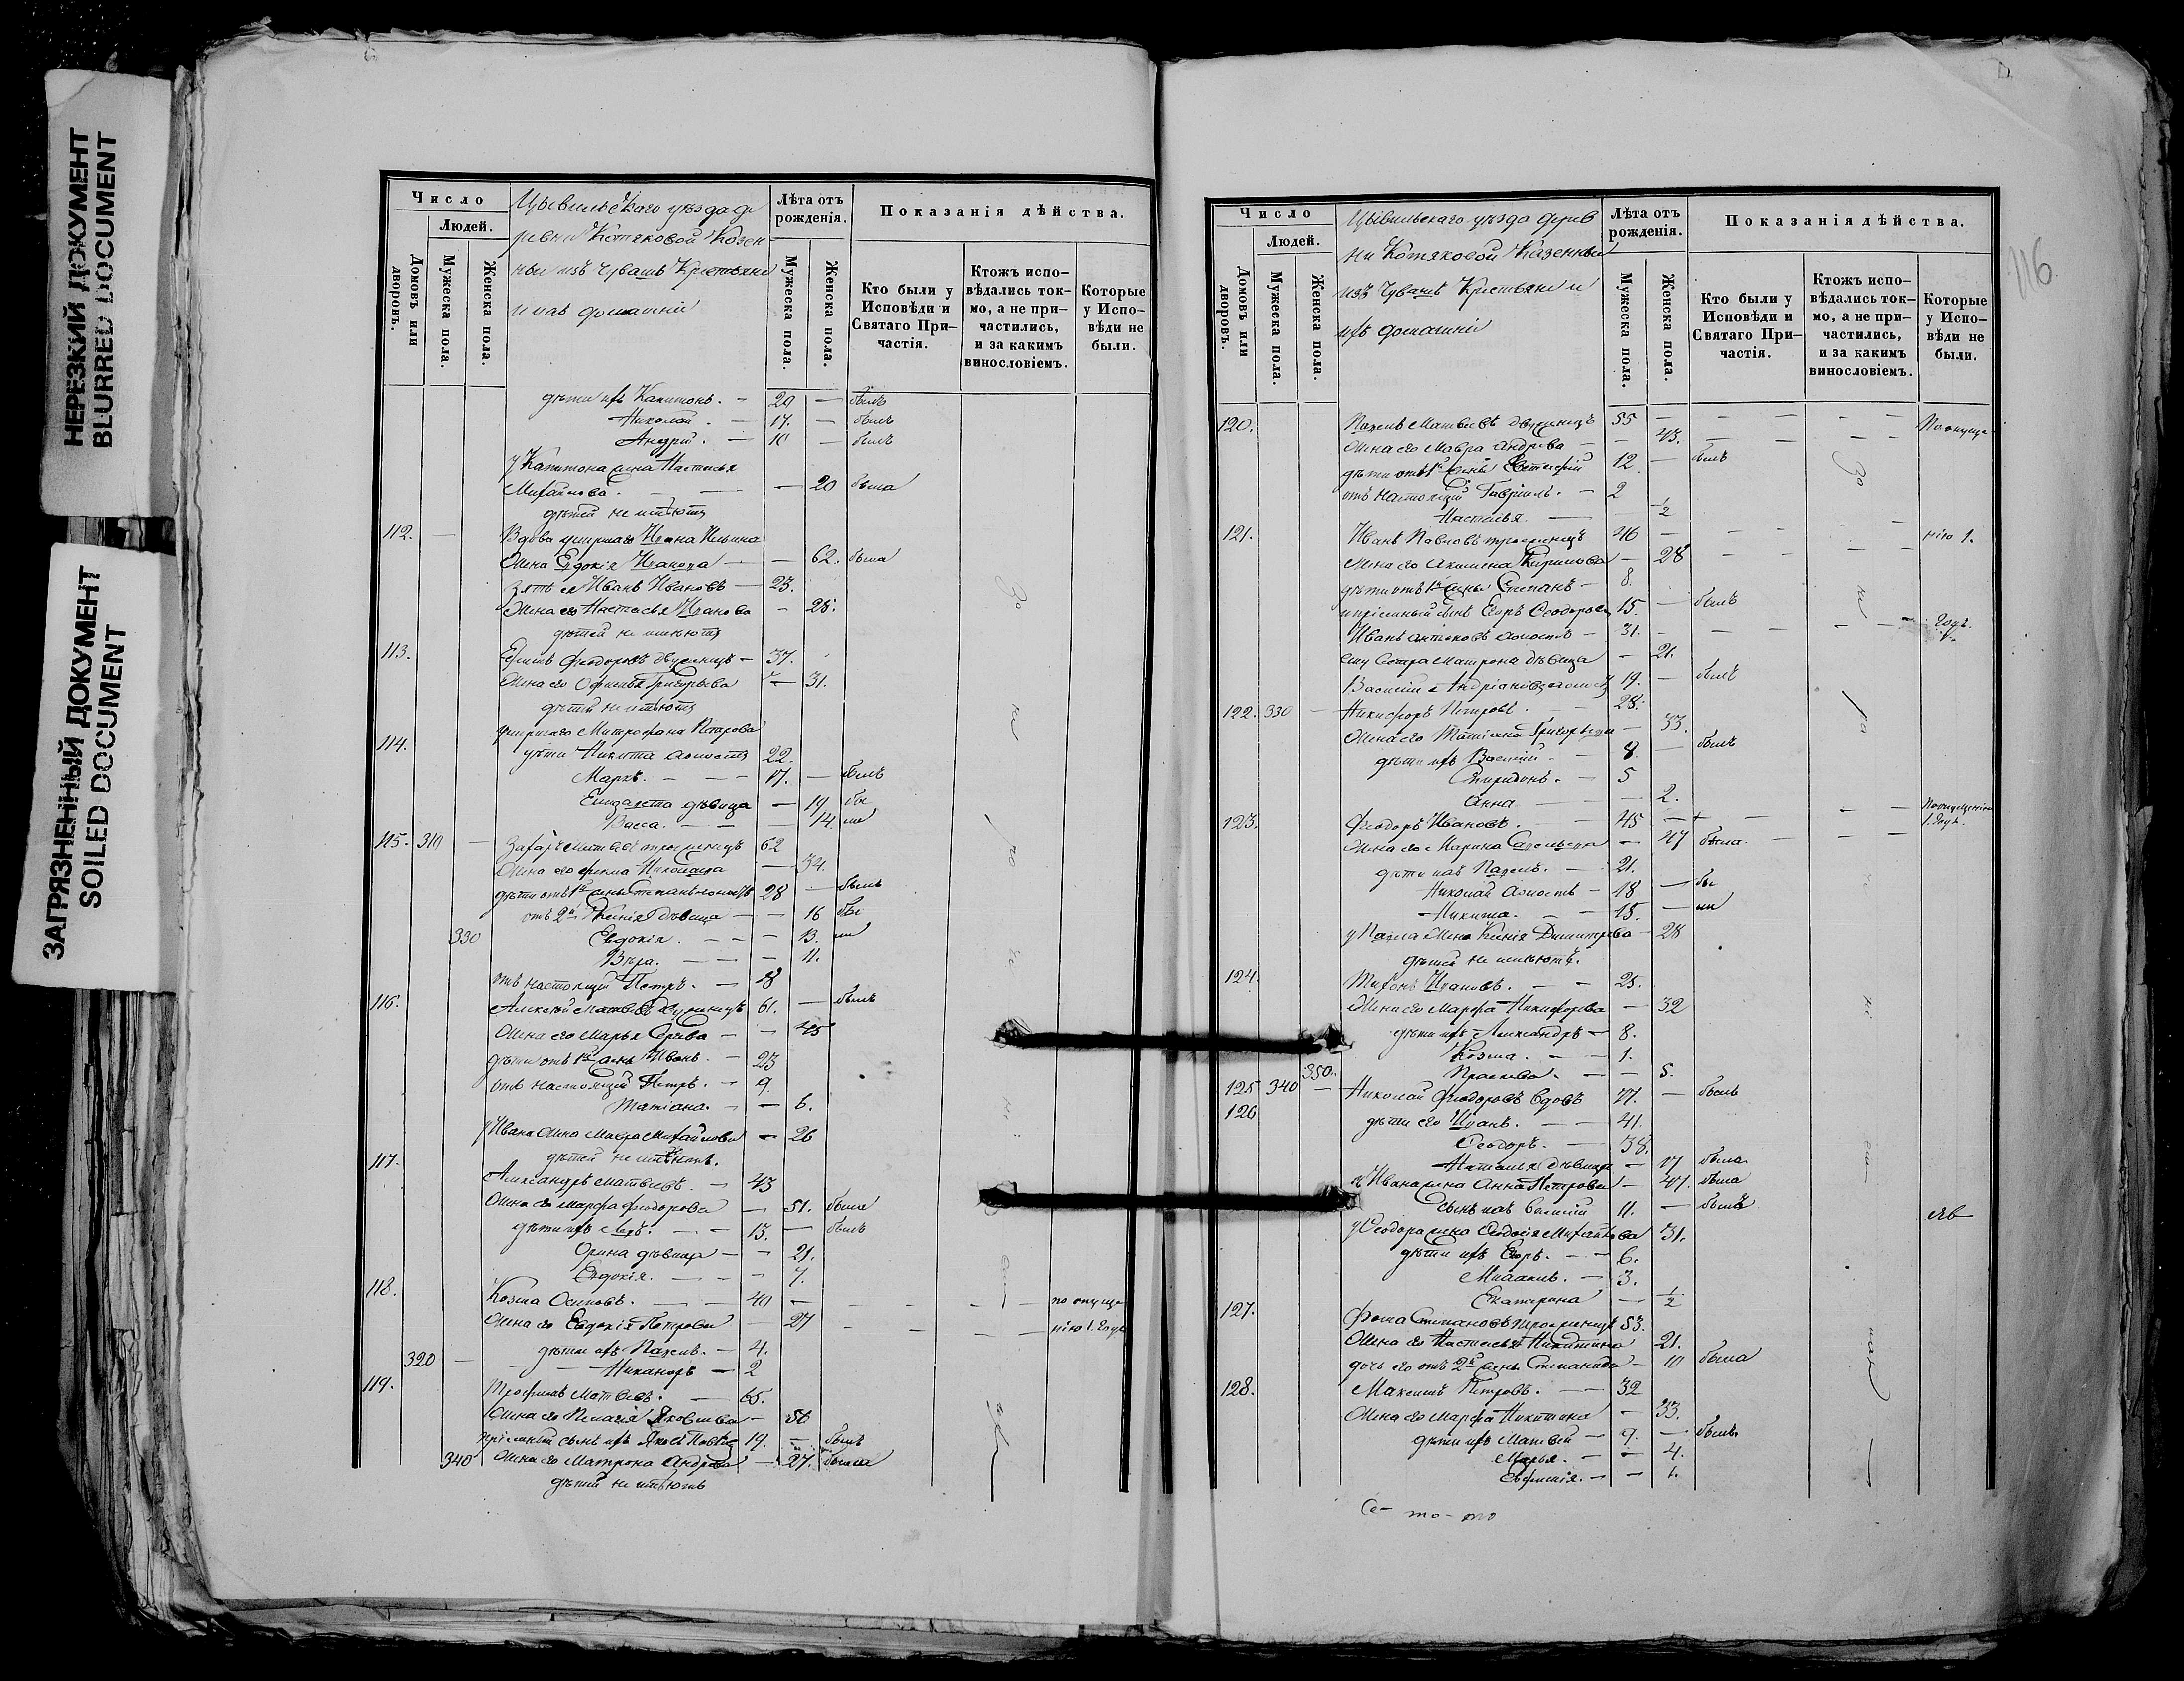 НЕРЕЗКИЙ ДОКУМЕНТ
BLURRED DOCUMENT
ЗАГРЯЗНЕННЫЙ ДОКУМЕНТ
SOILED DOCUMENT
Число
Людей.
Домовъ или дворовъ.
Мужеска пола.
Женска пола.
Цывильскаго уѣзда де
ревни Котяковой Казен
ныи изъ Чувашъ Крестьяни
и ихъ домашніи
Лѣта отъ рожденія.
Мужеска пола.
Женска пола.
Показанія дѣйства.
Кто были у Исповѣди и Святаго При-частія.
Ктожъ испо-вѣдались ток-мо, а не при-частились, и за какимъ винословіемъ.
Которые у Испо-вѣди не были.
дѣти ихъ Капитонъ. — 20 — былъ
Николай. — 17. — былъ
Андрей. — 10 — былъ
у Капитона жена Настасья
Михайлова. — — 20 была
дѣтей не имѣютъ
112. — Вдова умершаго Ивана Ильина
жена Евдокія Иванова — — 62. была
зять ея Иванъ Ивановъ — 23.
Жена его Настасья Иванова — 28.
дѣтей не имѣютъ
113. Ефимъ Феодоровъ двуженецъ — 37.
Жена его Офимья Григорьева — 31.
дѣтей не имѣютъ
умершаго Митрофана Петрова
114. дѣти Никита холостъ 22.
Маркъ. — — — 17. — былъ
Елизавета дѣвица — 19. бы
Васса. — — — 14. ли
115. 310 — Захаръ Матвѣевъ троеженецъ 62
Жена его Фекла Николаева — 34.
дѣти отъ 1й жены Степанъ холостъ 28 — былъ
отъ 2й Ксенія дѣвица — — 16 бы
330 Евдокія. — — — 13. ли
Вѣра. — — — 11.
отъ настоящей Петръ. — 8
116. Алексѣй Матвѣевъ двуженецъ 61. — былъ
Жена его Марья — — 45
дѣти отъ 1й жены Иванъ. — 23
отъ настоящей Петръ. — 9.
Татіана. — — 6.
у Ивана жена Мавра Михайлова — 26
дѣтей не имѣютъ.
117. Александръ Матвѣевъ. — 43
Жена его Марфа Феодорова — 51. была
дѣти ихъ — — 13. — былъ
Орина дѣвица — — 21.
Евдокія. — — — 7.
118. Козма Осиповъ. — — 40 — — — — по опуще
Жена его Евдокія Петрова — 27 — — — — нію 1. годъ
дѣти ихъ Павелъ. — 4.
320 — — — Никаноръ — 2
119. Трофимъ Матвѣевъ. — 65.
Жена его Пелагія Яковлева — 50
пріемный сынъ ихъ Яковъ 19. — былъ
340 Жена его Матрона Андреева — 27. была
дѣтей не имѣютъ
За
не
—
116.
Число
Людей.
Домовъ или дворовъ.
Мужеска пола.
Женска пола.
Цывильскаго уѣзда дерев
ни Котяковой Казенныи
изъ Чувашъ Крестьяни и
ихъ домашніи
Лѣта отъ рожденія.
Мужеска пола.
Женска пола.
Показанія дѣйства.
Кто были у Исповѣди и Святаго При-частія.
Ктожъ испо-вѣдались ток-мо, а не при-частились, и за какимъ винословіемъ.
Которые у Испо-вѣди не были.
120. Павелъ Матвѣевъ двуженецъ 55 — — — — По опуще
Жена его Мавра Андреева — 43. — — —
дѣти отъ 1й жены 12. — былъ
отъ настоящей Гавріилъ. — 2
Настасья. — — 1/2
121. Иванъ Павловъ троеженецъ 46 — — — — нію 1.
жена его Акилина Кирилова — 28 — — —
дѣти отъ 1й жены Степанъ — 8.
и пріемный сынъ Егоръ Феодоровъ 15. — былъ
Иванъ Антоновъ холостъ — 31. — — — — годъ.
ему сестра Матрона дѣвица — 21.
Василій Андріановъ холостъ 19. — былъ
122. 330 — Никифоръ Петровъ. — 28.
Жена его Татіана Григорьева — 33.
дѣти ихъ Василій — 8 — былъ
Спиридонъ. — 5
Анна — — 2.
123. Феодоръ Ивановъ. — 45 — — — — По опущенію 1. годъ.
Жена его Марина Савельева — 47 была. — —
дѣти ихъ Павелъ. — 21.
Николай холостъ — 18. — бы
Никита. — — 15. — ли
у Павла жена Ксенія Димитрева — 28
дѣтей не имѣютъ.
124. Тихонъ Ивановъ. — — 25.
Жена его Марфа Никифорова — 32
дѣти ихъ Александръ — 8.
Козма. — — 1.
350. Прасковья. — — 5.
125 340 — Николай Феодоровъ вдовъ 77. — былъ
126 дѣти его Иванъ. — — 41.
Феодоръ. — 38.
Наталья дѣвица — 17 была
у Ивана жена Анна Петрова — 47. была
сынъ ихъ Василій 11. — былъ
у Феодора жена Феодосія Михайлова 31.
дѣти ихъ Егоръ. — — 6.
— 3.
Екатерина — 1/2
127. Фома Степановъ троеженецъ 53.
Жена его Настасья Никитина 21.
дочь его отъ 2й жены Степанида — 10 была
128. Максимъ Петровъ. — — 32
Жена его Марфа Никитина — 33.
дѣти ихъ Матвѣй — 9. — былъ
Марья. — — 4.
Евфимія. — — 1.
За
не
Се- то- то